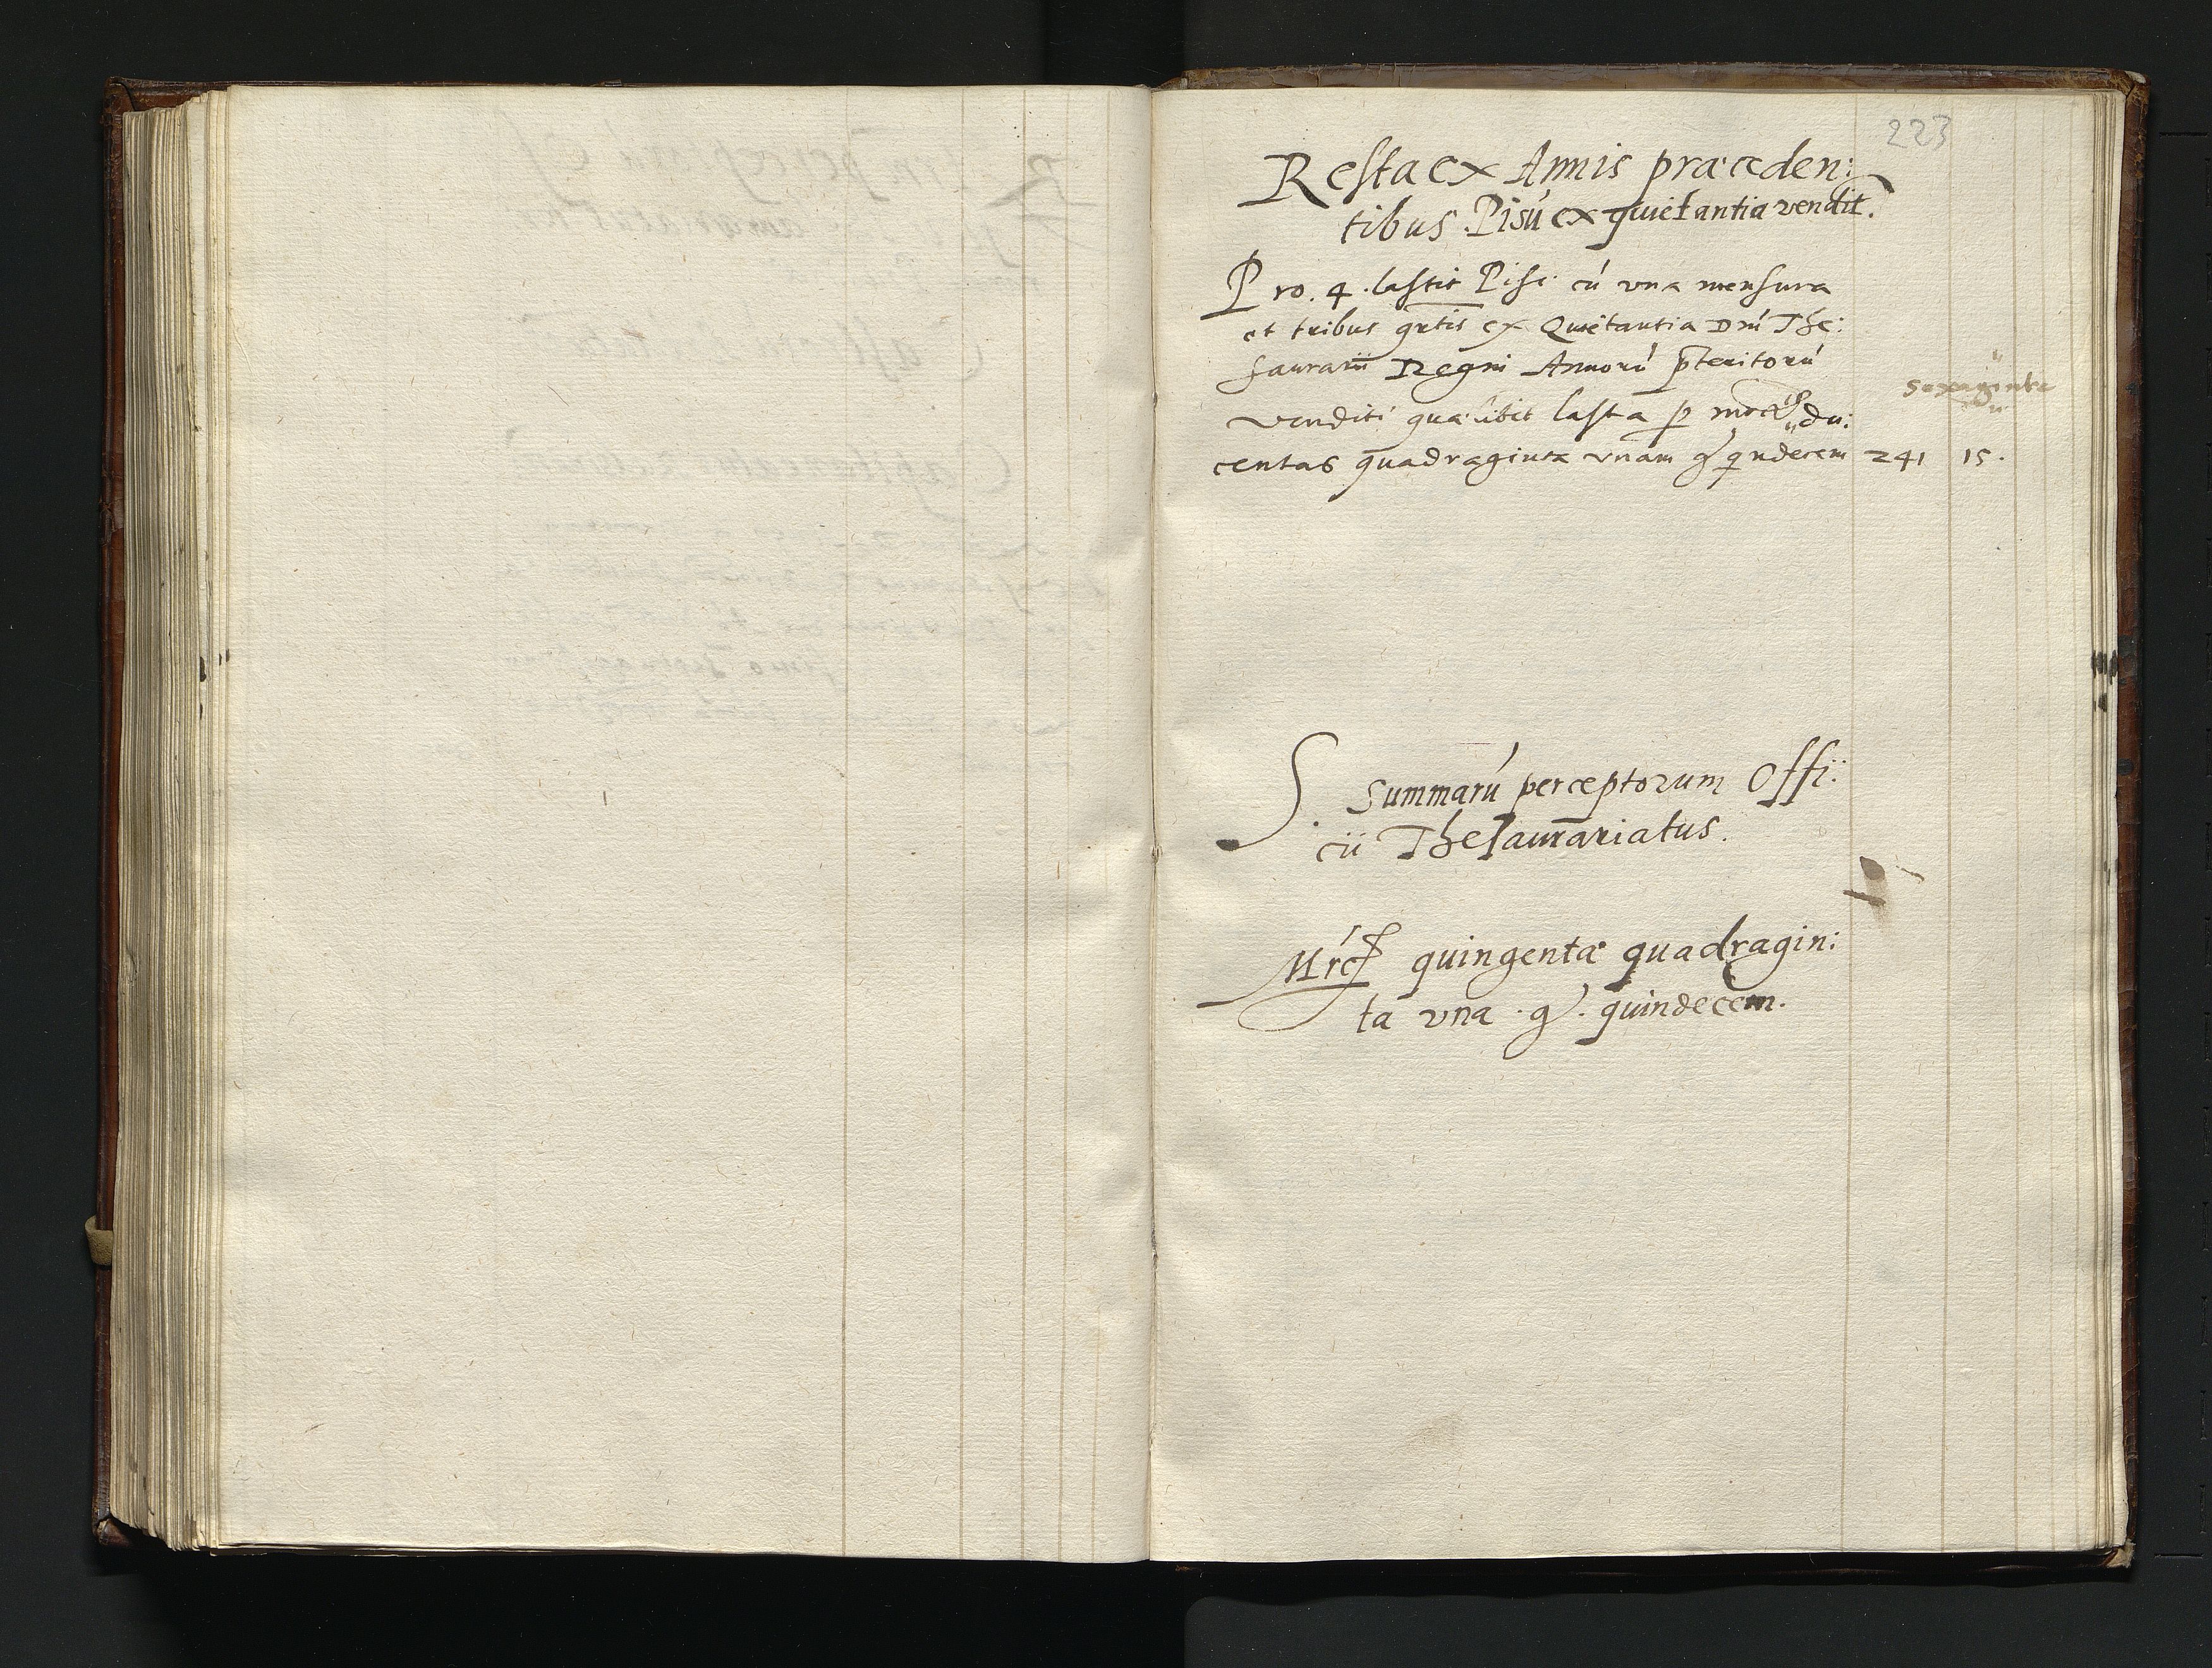 223
Resta ex Annis præceden:
tibus Pisú ex quietantia vendit.
Pro. 4. lastis Pisi cú vna mensura
et tribus grtis ex Quietantia Dni The:
saurarii Regni Annorú pteritorú
sexaginta
venditi qualibet lasta p mrc du:
centas quadraginta vnam g qndecem 241 15.
S. Summarú perceptorum Offi:
cii Thesaurariatus.
Mrc quingenta quadragin:
ta vna . g. quindecem.